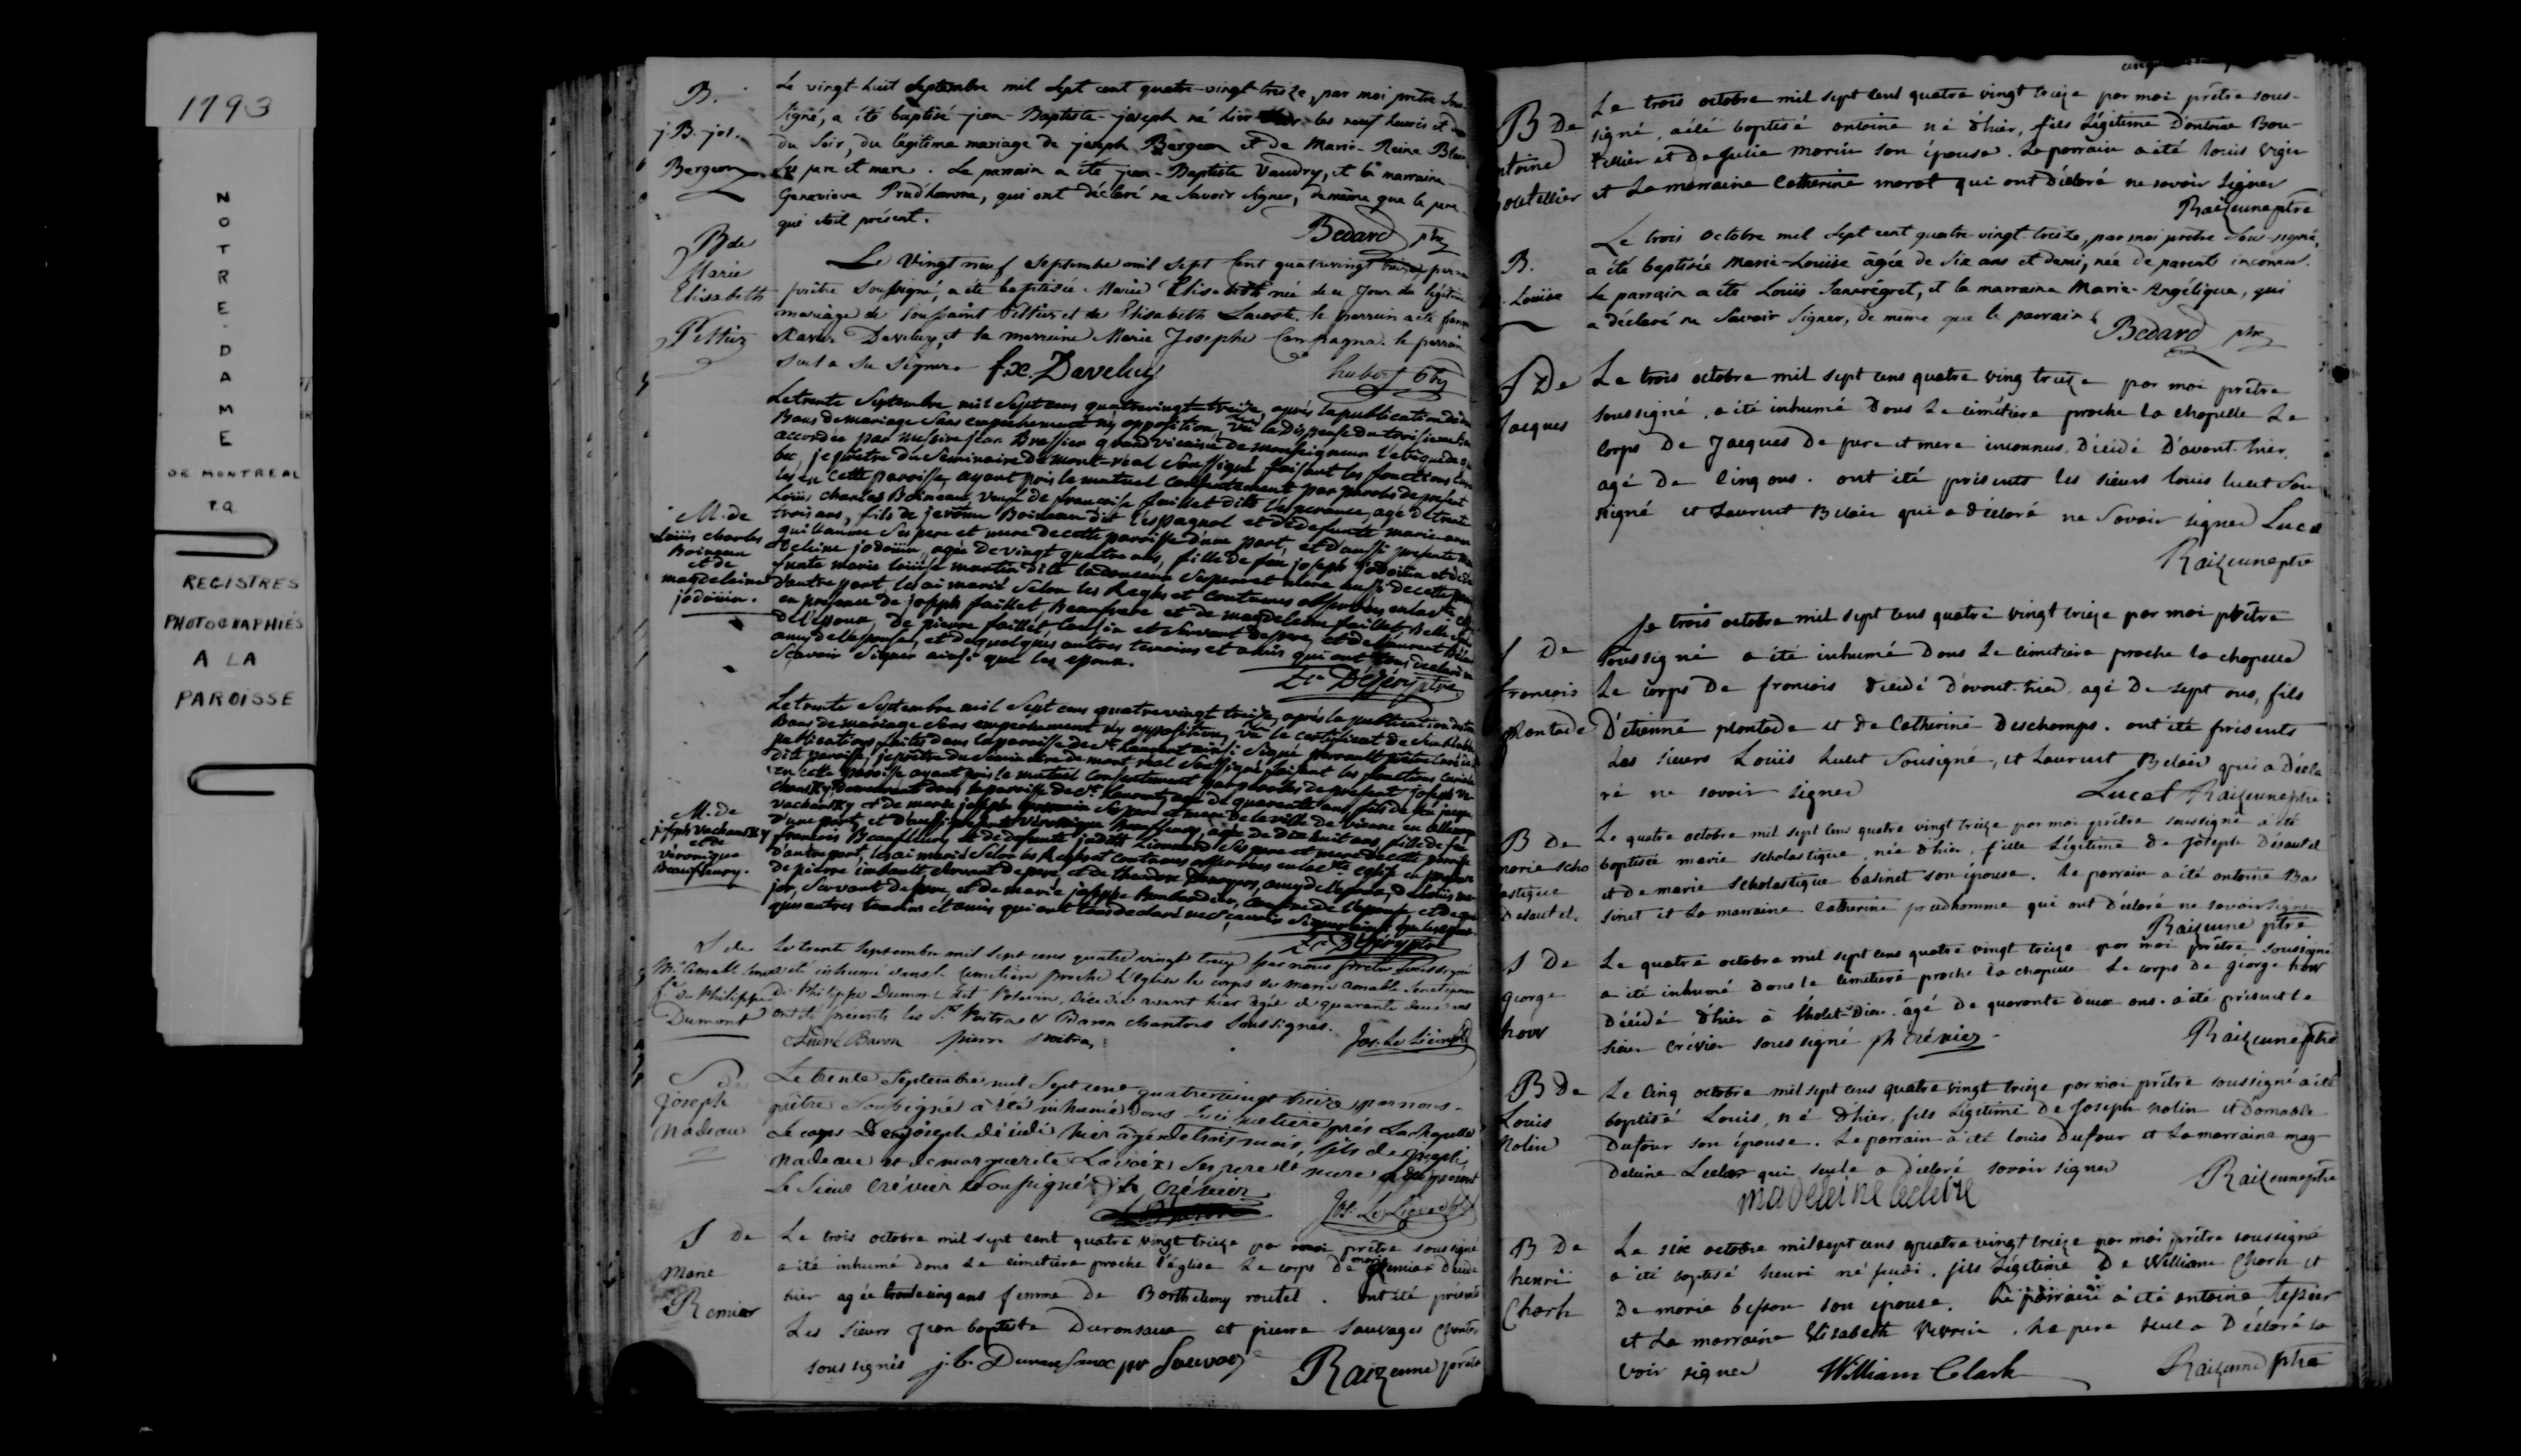 1793
NOTRE-DAME
DE MONTREAL
P.Q.
REGISTRES
PHOTOGRAPHIÉS
A LA
PAROISSE
B.
j.B. jos.
Bergeron
Le vingt-huit septembre mil sept cent quatre-vingt-treize, par moi prêtre sous-
signé, a été baptisé jean-Baptiste-joseph né hier les neuf heures et
du soir, du légitime mariage de joseph Bergeron et de Marie-Reine
ses pere et mere. Le parrain a été jean-Baptiste Vaudry, et la marraine
Genevieve Prud'homme, qui ont déclaré ne savoir signer, de même que le pere
qui étoit présent.
Bedard ptre
B de
Marie
Elisabeth
Peltier
Le Vingt neuf septembre mil sept Cent quatrevingt treize par
prêtre soussigné, a été baptisée Marie Elisabeth née de ce Jour du legitime
mariage de Toussaint Peltier et de Elisabeth Lacoste. le parrain a été
Xavier Daveluy, et la marraine Marie Josephe Campagna. le parrain
seul a su signer. f.x. Daveluy
M. de
Loüis charles
Boineau
et de
magdeleine
jodoüin.
Le trente Septembre mil Sept cens quatrevingt-treize, après la publication de
Bans de mariage Sans empêchement ny opposition, Vû la Dispense du troisieme
accordée par messire jean Brassier grand vicaire de monseigneur l'évêque de
bec, je prêtre du Seminaire de mont-real Soussigné faisant les fonctions
en cette paroisse, ayant pris le mutuel consentement par paroles de present
Loüis charles Boineau, veuf de françoise faillet dite l'esperance, agé de trente
trois ans, fils de jerôme Boineau dit l'espagnol et de defunte marie
guillaume Ses pere et mere de cette paroisse d'une part, et d'aussi presente
deleine jodoüin, agée de vingt quatre ans, fille de feu joseph jodoüin et de
funte marie loüise martin dite ladouceur Ses pere et mere aussi de cette
d'autre part les ai mariés Selon les Regles et Coutumes observées en la
en presence de joseph faillet, Beaufrere et de magdeleine faillet, Belle
de l'Epoux, de pierre faillet, Cousin et Servant de pere, et de Laurent
amy de l'epouse, et de quelques autres temoins et amis qui ont tous declaré
Scavoir Signer ainsi que les epoux.
M. de
joseph vachansky
et de
Véronique
Beaufleury.
Le trente Septembre mil Sept cens quatrevingt treize, après la publication de
Bans de mariage Sans empêchement ny opposition, vû le certificat de
publications faites dans la paroisse de St. Laurent ainsi Signé
dite paroisse, je prêtre du Seminaire de mont real Soussigné faisant les fonctions Curiales
en cette paroisse ayant pris le mutuel Consentement par paroles de present joseph
chansky, demeurant dans la paroisse de St. Laurent, agé de quarante ans, fils de feu
vachansky et de marie joseph Ses pere et mere de la ville de vienne en
d'une part, et d'aussi presente Véronique Beaufleury, agée de Dix huit ans, fille de feu
françois Beaufleury et de defunte judith Ses pere et mere de cette paroisse
d'autre part, les ai mariés Selon les Regles et Coutumes observées en la Ste eglise en presence
de pierre imbault, Servant de pere, et de theodore amy de l'epoux,
jor, Servant de pere, et de marie joseph Bombardier, Cousine de l'epouse, et de
ques autres temoins et amis qui ont tous declaré ne Scavoir Signer ainsi que les epoux.
S de
Me Amable
fe de Philippe
Dumont
Le trente septembre mil sept cens quatre vingt treize par nous prêtre soussigné
a été inhumé dans le Cimetière proche L'Eglise le corps de marie amable
de Philippe Dumont dit Poterin, Décédée avant hier âgée de quarante deux ans
ont été présents les Srs Poitras & Baron chantres soussignés.
André Baron pierre poitras
S de
Joseph
Nadeau
Le trente Septembre mil Sept cens quatrevingt treize par nous
prêtre soussigné a été inhumé dans le cimetiere près La chapelle
Le corps de joseph décédé hier âgé de trois mois, fils de joseph
Nadeau et de marguerite Lavoix Ses pere et mere a été présent
Le Sieur Crévier soussigné ph Crévier
S De
Marie
Remier
Le trois octobre mil sept cent quatre vingt treize par moi prêtre soussigné
a été inhumé dans Le cimetière proche l'église Le corps De marie Remier Décédé
hier agée trente cinq ans femme de Barthelemy routel. ont été présents
Les Sieurs Jean baptiste Duransaux et pierre Sauvages Chantres
soussignés j.b. Duransaux pr Sauvage Raizenne prêtre
B De
ntoine
outellier
Le trois octobre mil sept cens quatre vingt treize par moi prêtre sous-
signé, a été baptisé antoine né d'hier, fils Légitime D'antoine Bou-
tellier et De Julie morin son épouse. Le parrain a été louis viger
et La marraine Catherine marot qui ont Déclaré ne savoir signer
Raizenne ptre
B.
Louise
Le trois octobre mil sept cent quatre-vingt-treize, par moi prêtre sous-signé,
a été baptisée Marie-Louise âgée de six ans et demi, née de parents inconnus.
Le parrain a été Louis Sanrégret, et la marraine Marie-Angélique, qui
a déclaré ne savoir signer, de même que le parrain. Bedard ptre
S De
Jacques
Le trois octobre mil sept cens quatre ving treize par moi prêtre
soussigné, a été inhumé Dans Le cimétière proche la chapelle Le
corps De Jacques De pere et mere inconnus, Décédé D'avant-hier,
agé De Cinq ans. ont été présents les sieurs louis lucet sou-
signé et Laurent Belair qui a déclaré ne savoir signer Lucet
Raizenne ptre
S De
françois
plantade
Le trois octobre mil sept cens quatre vingt treize par moi prêtre
soussigné a été inhumé Dans Le cimetière proche la chapelle
Le corps De françois décédé D'avant-hier, agé De sept ans, fils
D'étienne plantade et De Catherine Deschamps. ont été présents
Les sieurs Louis Lucet sousigné, et Laurent Belair qui a Décla
ré ne savoir signer Lucet Raizenne ptre
B De
marie scho
lastique
Desautel.
Le quatre octobre mil sept cens quatre vingt treize par moi prêtre soussigné a été
baptisée marie scholastique, née d'hier, fille Légitime De Joseph Desautel
et De marie Scholastique basinet son épouse. Le parrain a été antoine Ba
sinet et La marraine Catherine prudhomme qui ont Déclaré ne savoir signer
Raizenne ptre
S De
george
how
Le quatre octobre mil sept cens quatre vingt treize par moi prêtre soussigné
a été inhumé Dans le cimétière proche la chapelle Le corps De george how
Décédé d'hier à l'hotel-Dieu. âgé De quarante Deux ans. a été présent le
sieur Crévier soussigné ph Crévier Raizenne ptre
B De
Louis
Nolin
Le Cinq octobre mil sept cens quatre vingt treize par moi prêtre soussigné a été
baptisé Louis, né d'hier, fils Légitime De Joseph Nolin et D'amable
Dufour son épouse. Le parrain a été louis Dufour et La marraine mag-
Deleine Lecler qui seule a déclaré savoir signer Raizenne ptre
madeleine leclere
B De
henri
Chark
Le six octobre mil sept cens quatre vingt treize par moi prêtre soussigné
a été baptisé henri né jeudi, fils Légitime De William Chark et
De marie besson son épouse. Le parrain a été antoine tessier
et La marraine Elisabeth . Le pere seul a Déclaré sa
voir signer William Clark Raizenne ptre